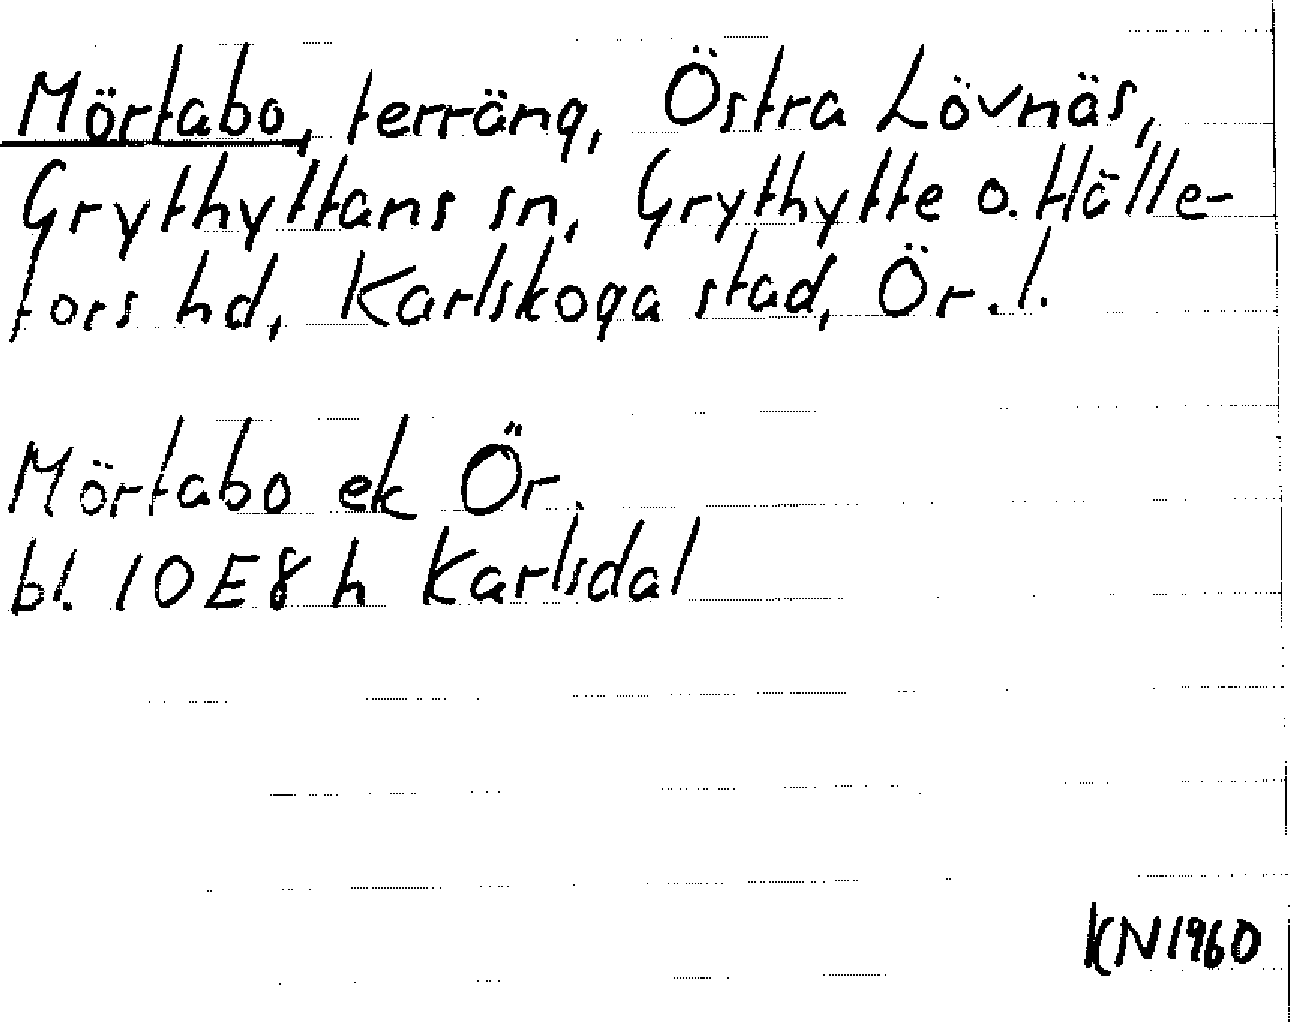 Mörtabo, terräng, Östra Lövnäs,
Grythyttans sn, Grythytte o. Hälle-
fors hd, Karlskoga stad, Ör. l.
Mörtabo ek Ör.
bl. 10E8h Karlsdal
KN1960